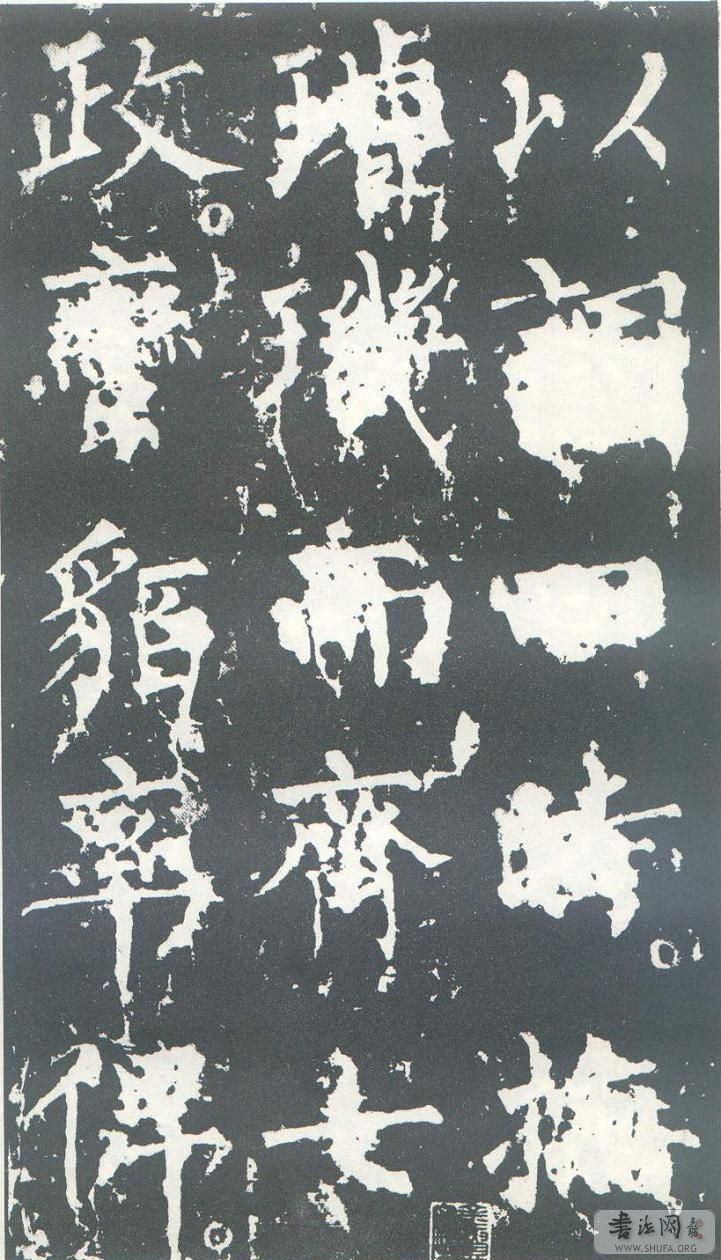 以調四時。撫
璿璣而齊七
政。蠻貊率俾。
書法网
WWW.SHUFA.ORG